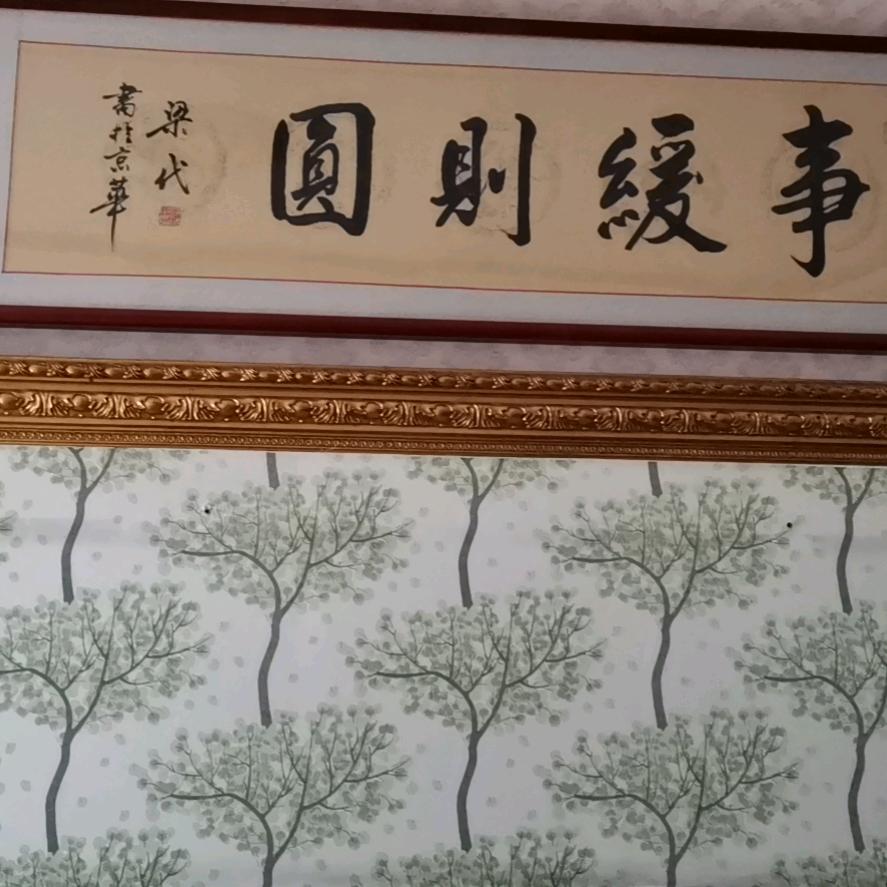 事緩則圓
梁代
書於京華